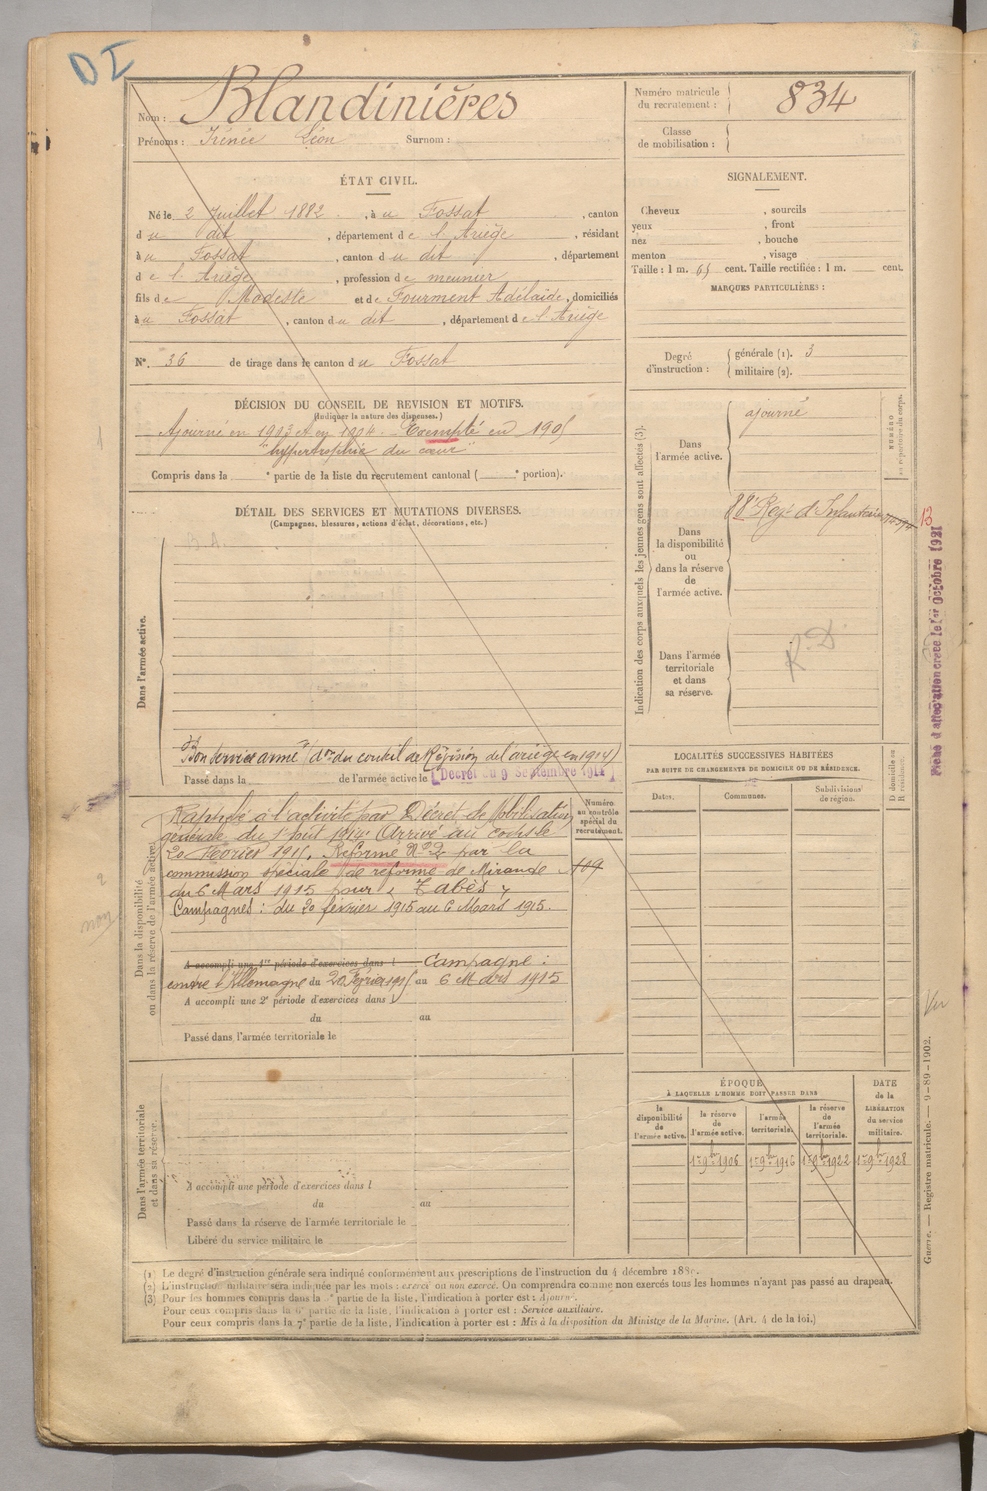 DI
Nom : Blandinières
Prénoms : Irénée Léon Surnom :
Numéro matricule du recrutement : 834
Classe de mobilisation :
ÉTAT CIVIL.
Né le 2 Juillet 1882, à u Fossat, canton
d u dit, département de l'Ariège, résidant
à u Fossat, canton d u dit, département
d e l'Ariège, profession de meunier
fils de Modeste et de Fourment Adélaïde, domiciliés
à u Fossat, canton du dit, département d e l'Ariège
N° 36 de tirage dans le canton d u Fossat
SIGNALEMENT.
Cheveux , sourcils
yeux , front
nez , bouche
menton , visage
Taille : 1 m. 65 cent. Taille rectifiée : 1 m. cent.
MARQUES PARTICULIÈRES :
Degré d'instruction : générale (1). 3
militaire (2).
DÉCISION DU CONSEIL DE REVISION ET MOTIFS.
(Indiquer la nature des dispenses.)
Ajourné en 1903 et en 1904. Exempté en 1905
"hypertrophie du cœur"
Compris dans la e partie de la liste du recrutement cantonal ( e portion).
DÉTAIL DES SERVICES ET MUTATIONS DIVERSES.
(Campagnes, blessures, actions d'éclat, décorations, etc.)
Dans l'armée active.
Bon service armé (don du conseil de Révision de l'ariège en 1914)
Passé dans la de l'armée active le (Décret du 9 Septembre 1914)
Indication des corps auxquels les jeunes gens sont affectés (3).
Dans l'armée active.
ajourné
NUMÉRO au répertoire du corps.
Dans la disponibilité ou dans la réserve de l'armée active.
88e Regt d'Infanterie
13
Dans l'armée territoriale et dans sa réserve.
R. D.
Fiche d'affectation créée le 1er Octobre 1921
Dans la disponibilité ou dans la réserve de l'armée active.
Rappelé à l'activité par Décret de Mobilisation
générale du 1er Août 1914. Arrivé au corps le
20 Février 1915. Réformé N°2 par la
commission spéciale de réforme de Mirande
du 6 Mars 1915 pour "Tabès"
Campagnes : du 20 février 1915 au 6 Mars 1915.
Numéro au contrôle spécial du recrutement.
109
A accompli une 1re période d'exercices dans l Campagne :
contre l'Allemagne du 20 Février 1915 au 6 Mars 1915
A accompli une 2e période d'exercices dans l
du au
Passé dans l'armée territoriale le
LOCALITÉS SUCCESSIVES HABITÉES
PAR SUITE DE CHANGEMENTS DE DOMICILE OU DE RÉSIDENCE.
Dates.
Communes.
Subdivisions de région.
D domicile ou R résidence.
Dans l'armée territoriale et dans sa réserve.
A accompli une période d'exercices dans l
du au
Passé dans la réserve de l'armée territoriale le
Libéré du service militaire le
ÉPOQUE
À LAQUELLE L'HOMME DOIT PASSER DANS
la disponibilité de l'armée active.
la réserve de l'armée active.
l'armée territoriale.
la réserve de l'armée territoriale.
DATE de la LIBÉRATION du service militaire.
1er 9bre 1906
1er 9bre 1916
1er 9bre 1922
1er 9bre 1928
Vu
Guerre. — Registre matricule. — 9-89-1902.
(1) Le degré d'instruction générale sera indiqué conformément aux prescriptions de l'instruction du 4 décembre 1889.
(2) L'instruction militaire sera indiquée par les mots : exercé ou non exercé. On comprendra comme non exercés tous les hommes n'ayant pas passé au drapeau.
(3) Pour les hommes compris dans la e partie de la liste, l'indication à porter est : Ajourné.
Pour ceux compris dans la 6e partie de la liste, l'indication à porter est : Service auxiliaire.
Pour ceux compris dans la 7e partie de la liste, l'indication à porter est : Mis à la disposition du Ministre de la Marine. (Art. 4 de la loi.)